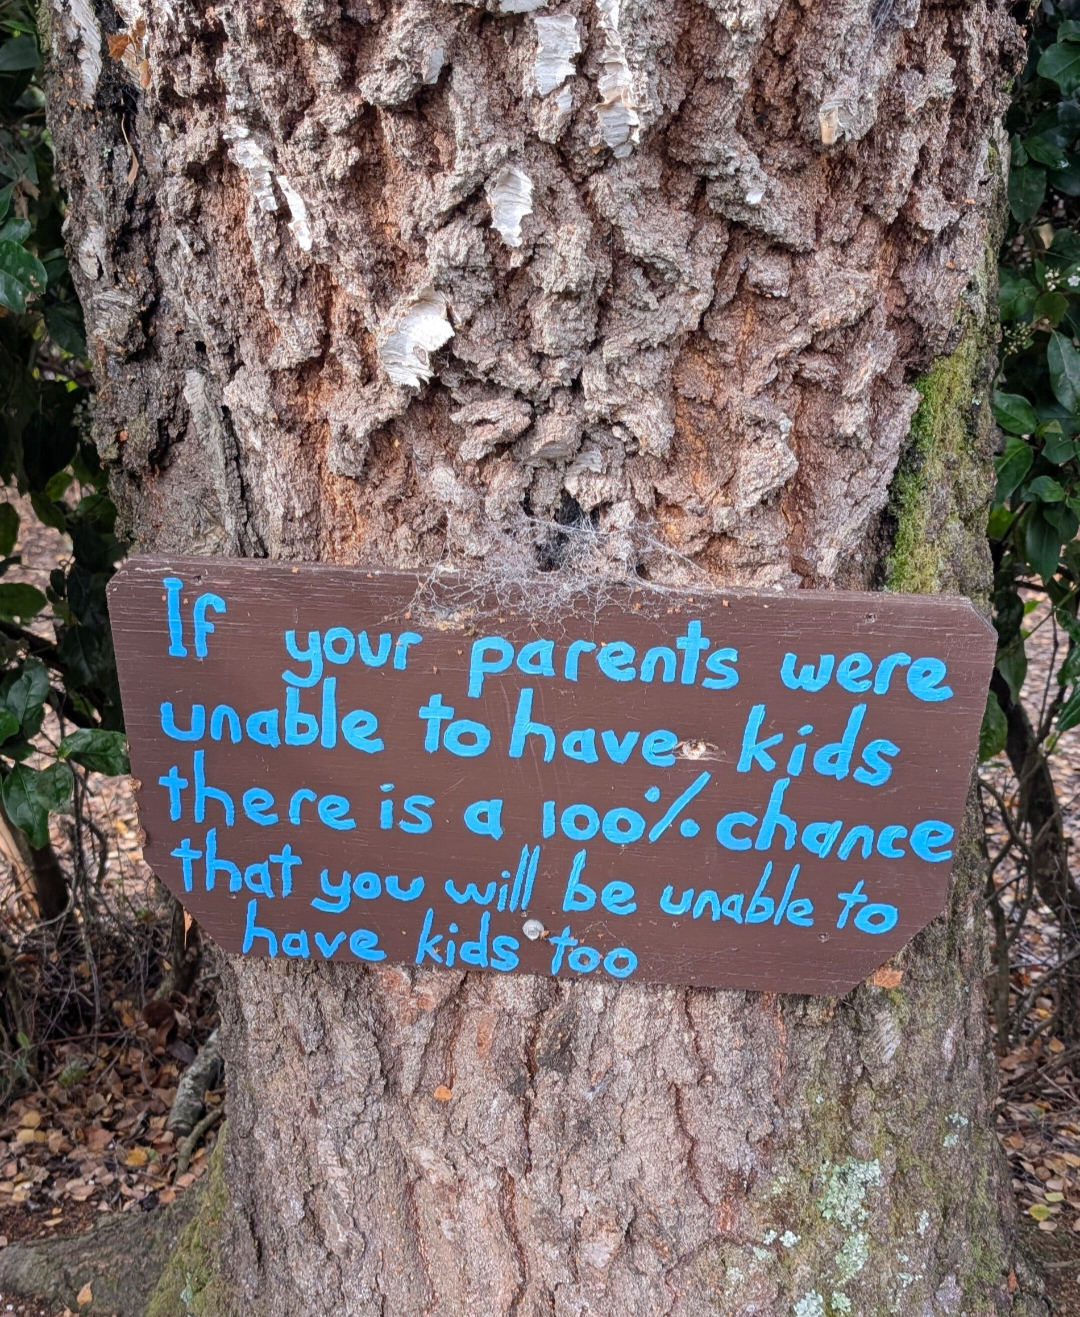 If your parents were
unable to have kids
there is a 100% chance
that you will be unable to
have kids too